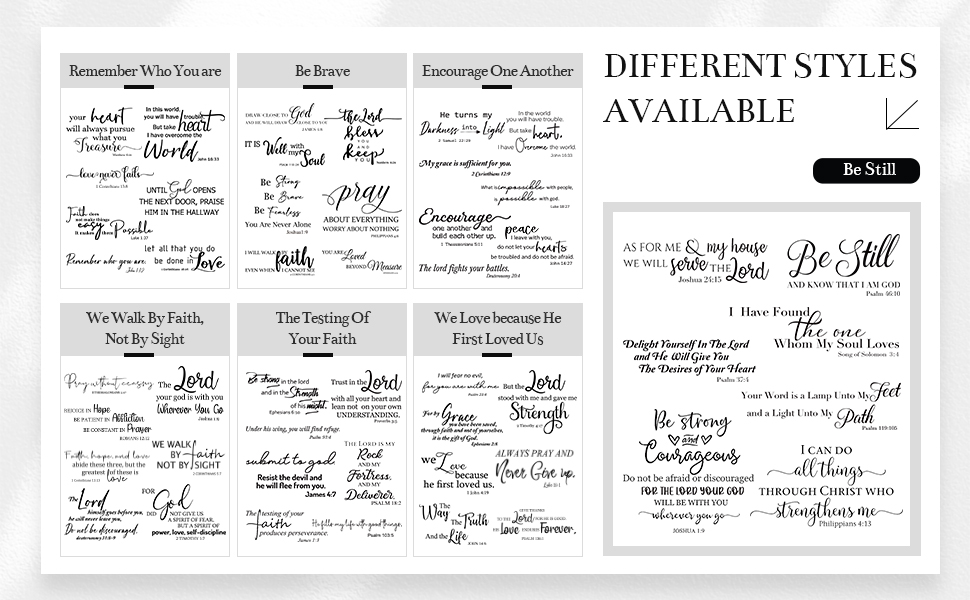 Remember Who You are
your heart
will always pursue
what you
Treasure
Matthew 6:21
In this world,
you will have trouble
But take heart
I have overcome the
World
John 16:33
love never fails
1 Corinthians 13:8
UNTIL God OPENS
THE NEXT DOOR, PRAISE
HIM IN THE HALLWAY
Faith does
not make things
easy
It makes them Possible
Luke 1:37
let all that you do
be done in Love
1 Corinthians 16:14
Remember who you are.
Be Brave
DRAW CLOSE TO God
AND HE WILL DRAW CLOSE TO YOU
JAMES 4:8
the Lord
bless
YOU
AND
keep
YOU
Numbers 6:24
IT IS Well with my Soul
Be Strong
Be Brave
Be Fearless
You Are Never Alone
Joshua 1:9
pray
ABOUT EVERYTHING
WORRY ABOUT NOTHING
PHILIPPIANS 4:6
I WILL WALK BY
faith
EVEN WHEN I CANNOT SEE
YOU ARE Loved
BEYOND Measure
Encourage One Another
He turns my
Darkness into Light
2 Samuel 22:29
In the world
you will have trouble.
But take heart,
I have Overcome the world.
John 16:33
My grace is sufficient for you.
2 Corinthians 12:9
What is impossible with people,
is possible with god.
Luke 18:27
Encourage
one another and
build each other up.
1 Thessalonians 5:11
peace
I leave with you,
do not let your hearts
be troubled and do not be afraid.
John 14:27
The lord fights your battles.
Deuteronomy 20:4
We Walk By Faith,
Not By Sight
Pray without ceasing
The Lord
your god is with you
Wherever You Go
Joshua 1:9
REJOICE IN Hope
BE PATIENT IN Affliction
BE CONSTANT IN Prayer
ROMANS 12:12
WE WALK
BY faith
NOT BY SIGHT
2 CORINTHIANS 5:7
Faith, hope and love
abide these three, but the
greatest of these is
love
1 Corinthians 13:13
The Lord
himself goes before you,
he will never leave you,
Do not be discouraged.
deuteronomy 31:8-9
FOR God
DID NOT GIVE US
A SPIRIT OF FEAR,
BUT A SPIRIT OF
power, love, self-discipline
2 TIMOTHY 1:7
The Testing Of
Your Faith
Be strong in the lord
and in the Strength
of his might.
Ephesians 6:10
Trust in the Lord
with all your heart and
lean not on your own
UNDERSTANDING.
Proverbs 3:5
Under his wing, you will find refuge.
Psalm 91:4
submit to god
Resist the devil and
he will flee from you.
James 4:7
THE LORD IS MY
Rock
AND MY
Fortress,
AND MY
Deliverer,
PSALM 18:2
The testing of your
faith
produces perseverance.
James 1:3
He fills my life with good things,
Psalm 103:5
We Love because He
First Loved Us
I will fear no evil,
for you are with me
Psalm 23:4
But the Lord
stood with me and gave me
Strength
2 Timothy 4:17
For by
Grace
you have been saved,
through faith and not of yourselves,
it is the gift of God.
Ephesians 2:8
we Love
because
he first loved us.
1 John 4:19
ALWAYS PRAY AND
Never Give up.
Luke 18:1
The Way The Truth
And the Life
JOHN 14:6
GIVE THANKS
TO THE Lord FOR HE IS GOOD
HIS Love ENDURES Forever.
PSALM 136:1
DIFFERENT STYLES
AVAILABLE
Be Still
AS FOR ME & my house
WE WILL serve THE Lord
Joshua 24:15
Be Still
AND KNOW THAT I AM GOD
Psalm 46:10
I Have Found
the one
Whom My Soul Loves
Song of Solomon 3:4
Delight Yourself In The Lord
and He Will Give You
The Desires of Your Heart
Psalm 37:4
Your Word is a Lamp Unto My Feet
and a Light Unto My Path
Psalm 119:105
Be strong
and
Courageous
Do not be afraid or discouraged
FOR THE LORD YOUR GOD
WILL BE WITH YOU
wherever you go
JOSHUA 1:9
I CAN DO
all things
THROUGH CHRIST WHO
strengthens me
Philippians 4:13